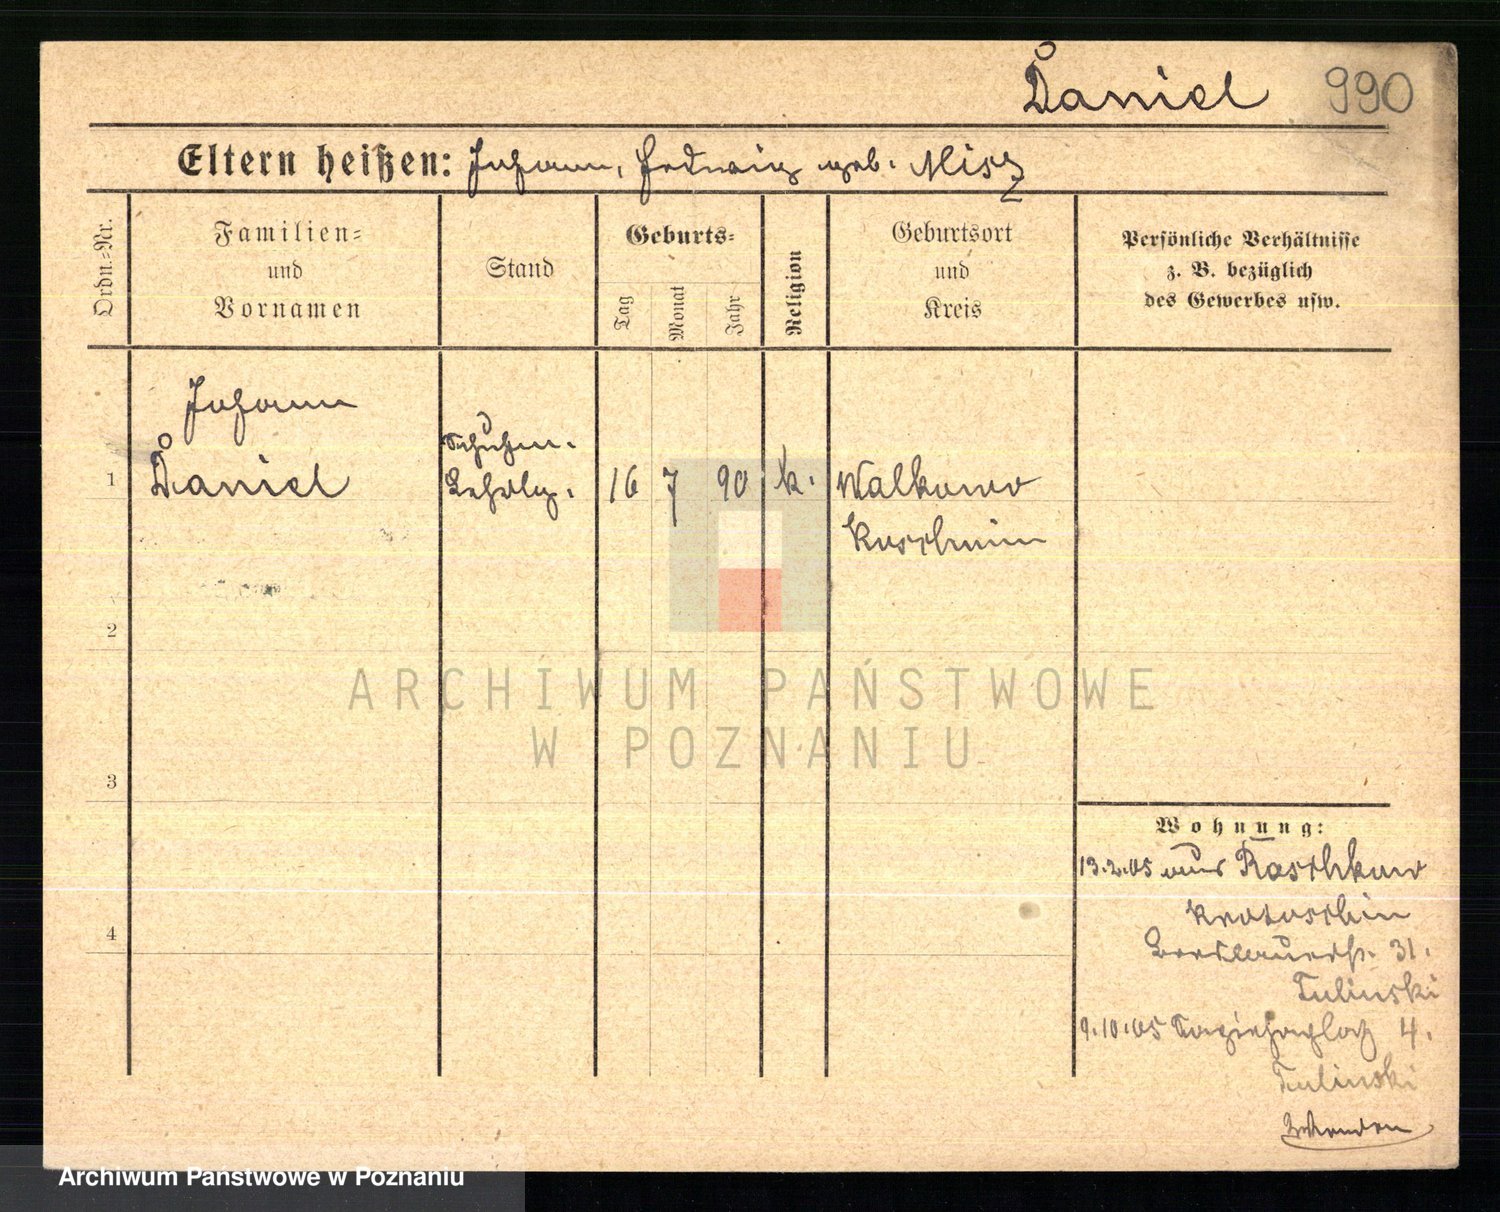 Daniel 990
Eltern heißen: Johann, Hedwig geb. Misz
Ordn.-Nr.
Familien-
und
Vornamen
Stand
Geburts-
Tag
Monat
Jahr
Religion
Geburtsort
und
Kreis
Persönliche Verhältnisse
z. B. bezüglich
des Gewerbes usw.
Johann
Schuhm.
1 Daniel Lehrlg. 16 7 90 k. Walkowo
Koschmin
2
3
4
ARCHIWUM PAŃSTWOWE
W POZNANIU
Wohnung:
13.2.05 aus Raschkow
Krotoschin
31.
Tulinski
9.10.05 Sapiehaplatz 4.
Tulinski
Archiwum Państwowe w Poznaniu